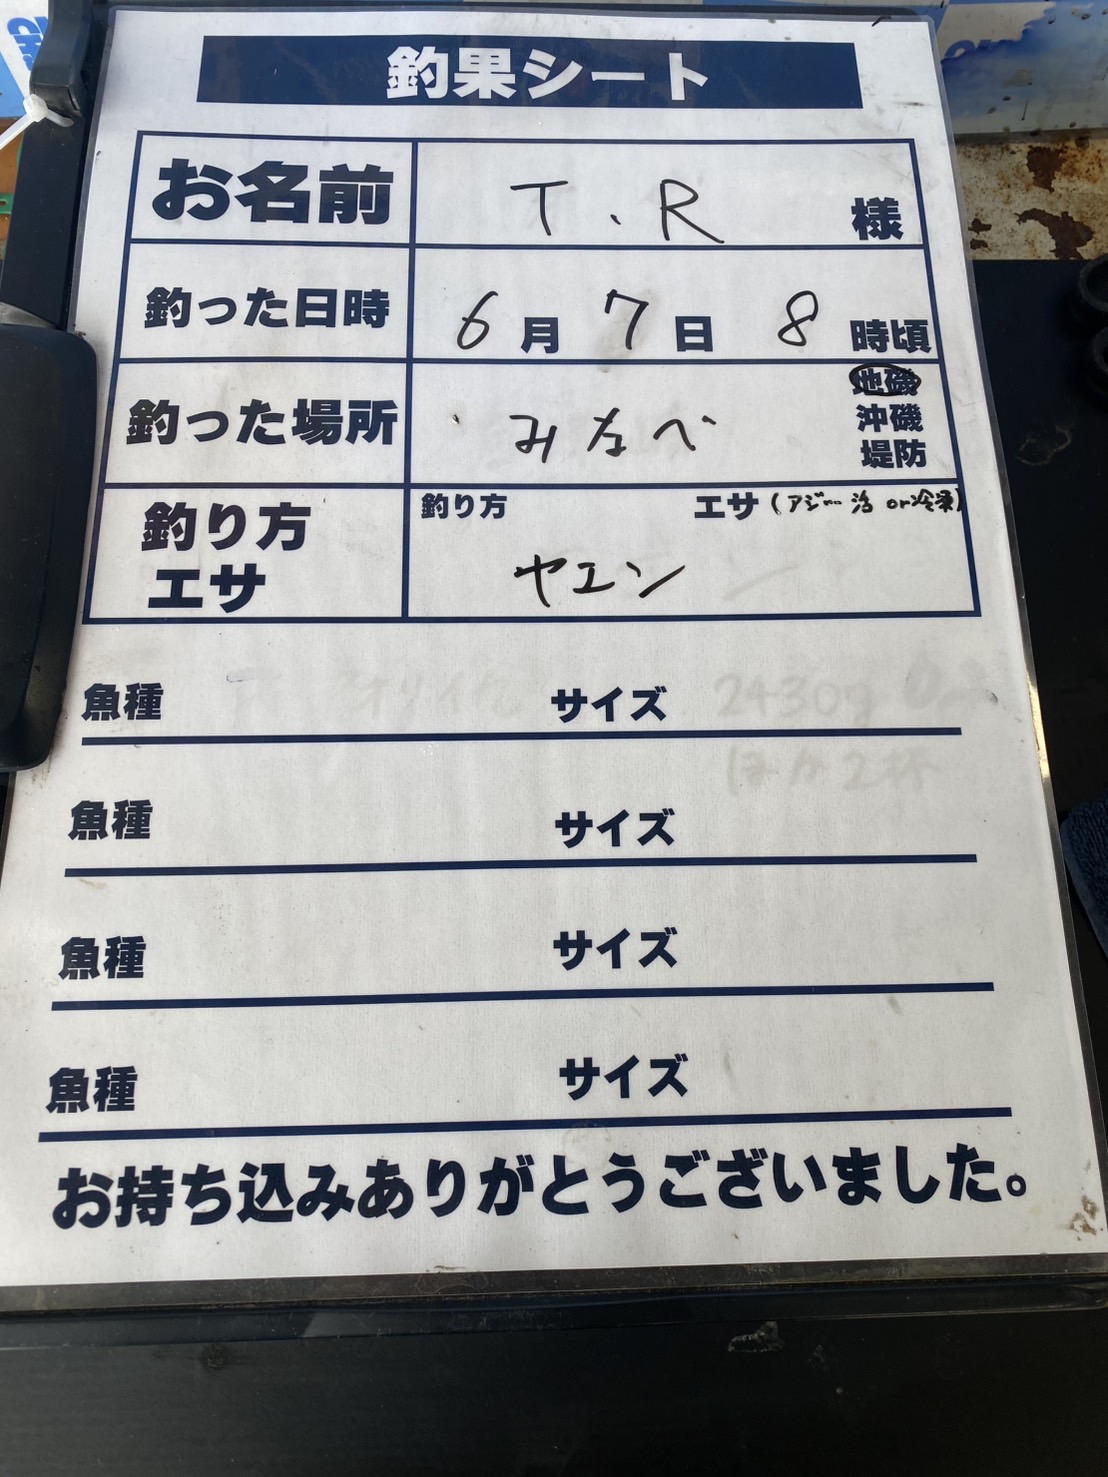 釣果シート
お名前 T.R 様
釣った日時 6月7日 8時頃
釣った場所 みなべ 地磯
沖磯
堤防
釣り方 エサ 釣り方 エサ(アジ… 活or冷凍)
ヤエン
魚種 アオリイカ サイズ 2430g
ほか2杯
魚種 サイズ
魚種 サイズ
魚種 サイズ
お持ち込みありがとうございました。